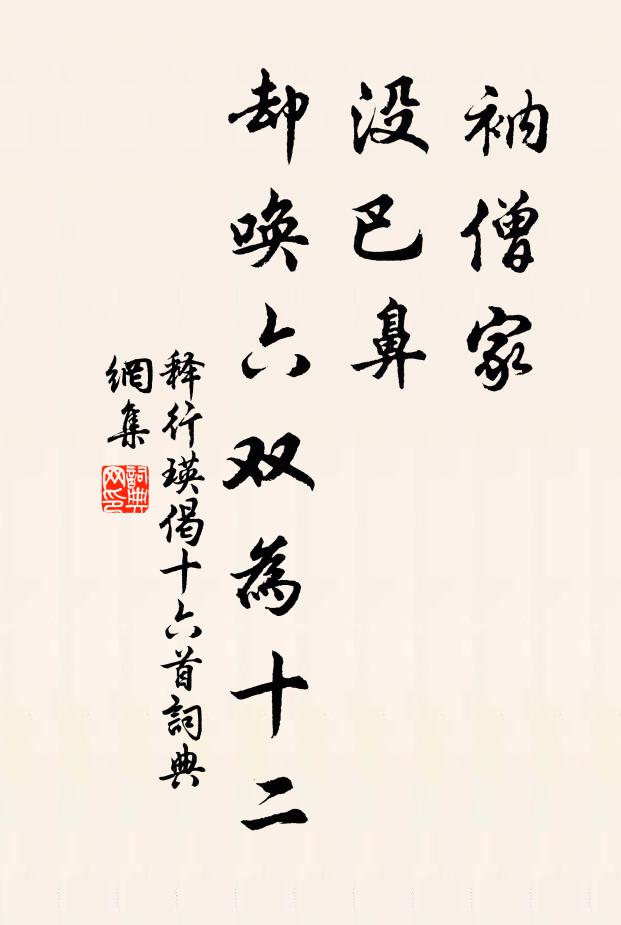 衲僧家
没巴鼻
却唤六双為十二
释行瑛偈十六首詞典
網集
詞典
网印